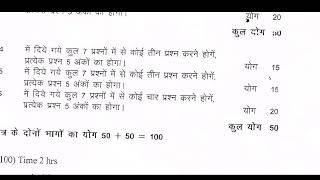 प्रत्येक प्रश्न 5 अंकों का होगा। योग 20
कुल योग 50
4 में दिये गये कुल 7 प्रश्नों में से कोई तीन प्रश्न करने होगें,
प्रत्येक प्रश्न 5 अंकों का होगा। योग 15
में दिये गये कुल 7 प्रश्नों में से कोई तीन प्रश्न करने होगें,
प्रत्येक प्रश्न 5 अंकों का होगा। योग 15
में दिये गये कुल 7 प्रश्नों में से कोई चार प्रश्न करने होगें,
प्रत्येक प्रश्न 5 अंकों का होगा। योग 20
कुल योग 50
त्र के दोनों भागों का योग 50 + 50 = 100
100) Time 2 hrs